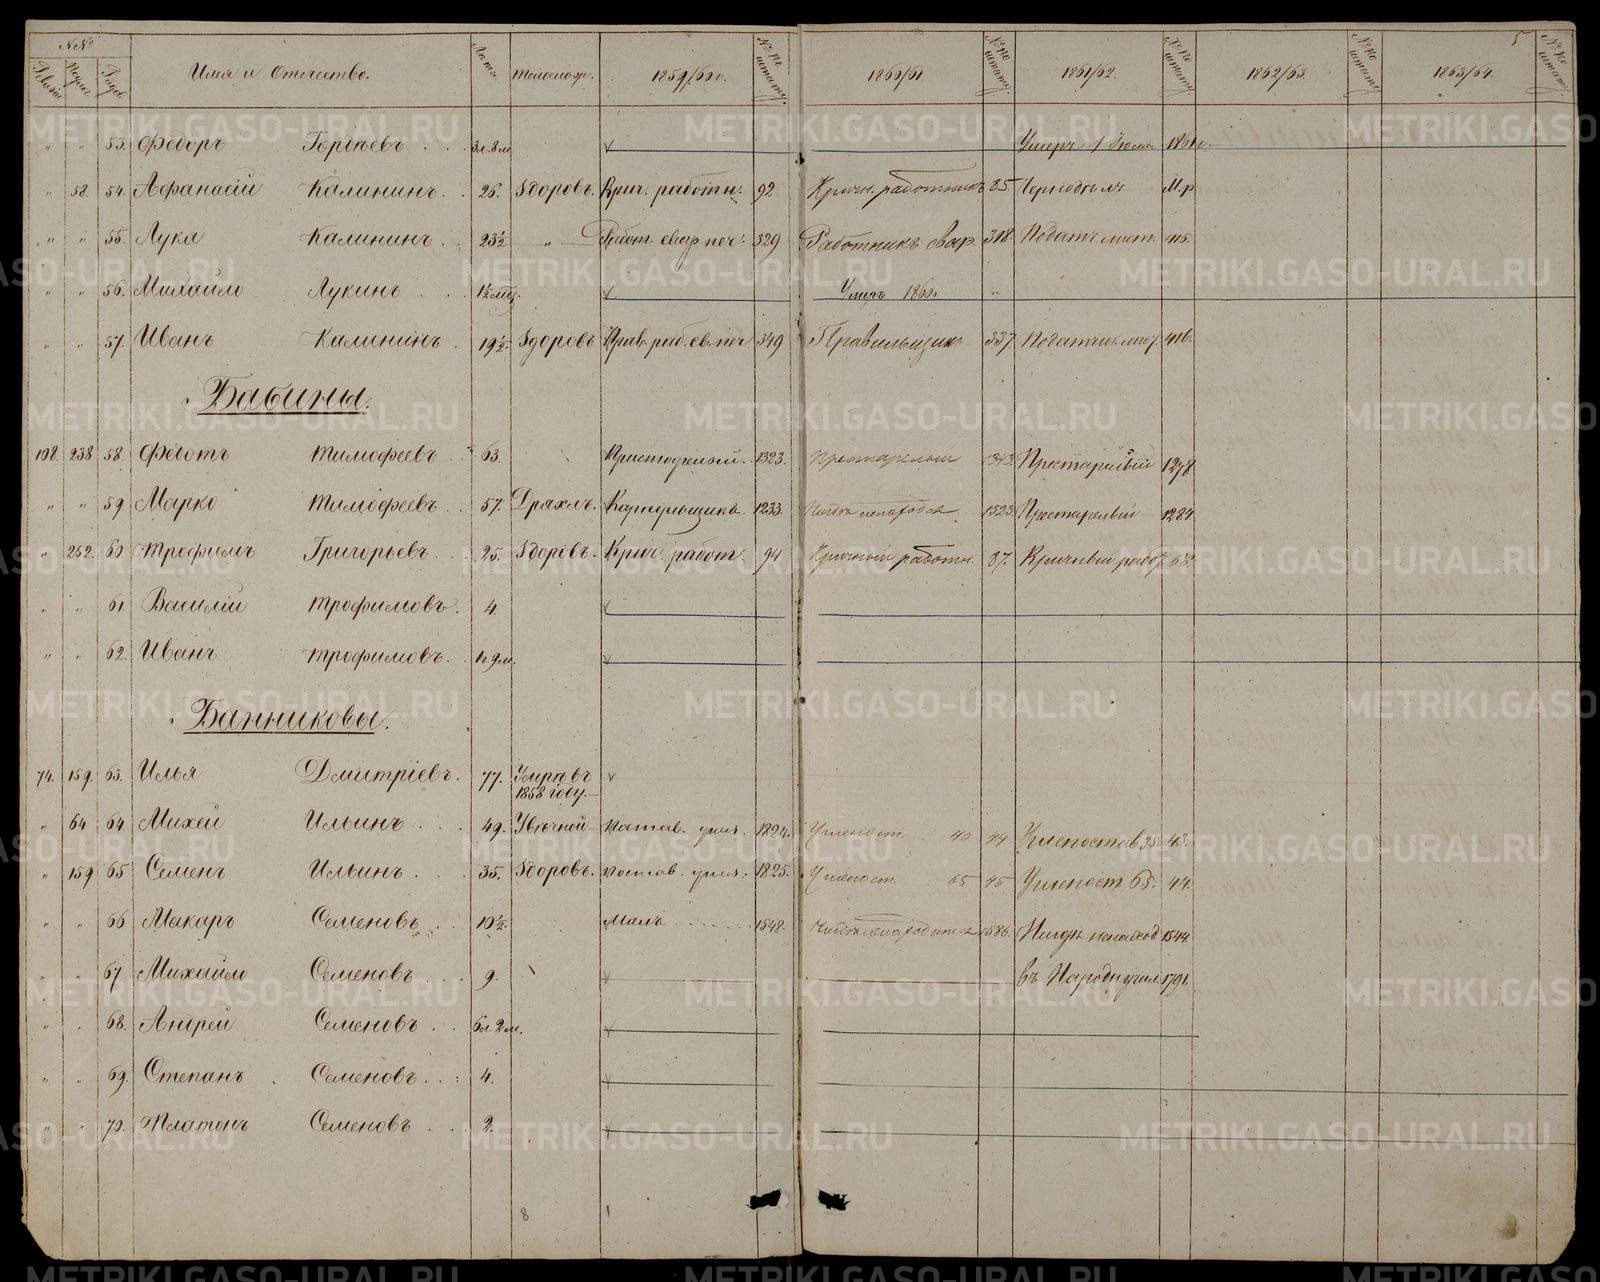 №№ Имя и Отечество. Лѣта. Телослож. 1859/60г. №№ по штату. 1860/61 №№ по штату. 1861/62. №№ по штату. 1862/63. №№ по штату. 1863/64. №№ по штату. 5
" " 53. Федоръ Гордѣевъ 3л.8м Умеръ 1 Іюля 1861г.
" 58. 54. Афанасій Калининъ. 26. Здоровъ. Крич. работн. 92 Кричн. работникъ 85 М.р
" " 55. Лука Калининъ. 23½ " Работ. свар печ. 329 Работникъ свар. 318 Податч. лист. 415.
" " 56. Михайло Лукинъ 1½ мѣс. Умеръ 1860г. "
" " 57. Иванъ Калининъ. 19½. Здоровъ Прав. раб. св. печ 349 Правильщикъ 337. Податчик лист. 416.
Бабины.
108. 238 58. Федотъ Тимофеевъ 63. Престарелый. 1323. Престарелый 1343 Престарелый 1278
" " 59 Марко Тимофеевъ 57. Дряхлъ. Караульщикъ. 1233. Нигдѣ не находится 1523 Престарелый 1284.
" 252. 60. Трофимъ Григорьевъ. 25. Здоровъ. Крич. работ. 94 Кричный работн. 87. Кричный работ. 68.
" " 61 Василій Трофимовъ. 4.
" " 62. Иванъ Трофимовъ. 1г.9м.
Банниковы.
74. 159. 63. Илья Дмитріевъ. 77. Умре въ 1858 году.
" 64 64 Михей Ильинъ 49. Увѣчной Постав. угля. 1824. Углепост. 40 44 Углепостав. 38. 43.
" 159 65 Семенъ Ильинъ 35. Здоровъ. Постав. угля. 1825. Углепост. 65 45 Углепост. 65. 44.
" " 66 Макаръ Семеновъ 10½. Малъ 1548. Нигдѣ не находится 1586. Нигдѣ не наход 1544.
" " 67. Михайло Семеновъ 9. въ Народн. учил. 1791.
" " 68. Андрей Семеновъ 6л.2м.
" " 69. Степанъ Семеновъ 4.
" " 70. Платонъ Семеновъ 2.
8
METRIKI.GASO-URAL.RU